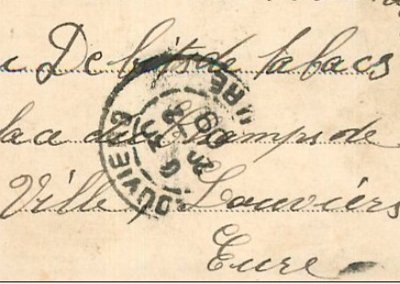 Debits de tabacs
Place du Champs de
Ville Louviers
Eure
LOUVIERS
EURE